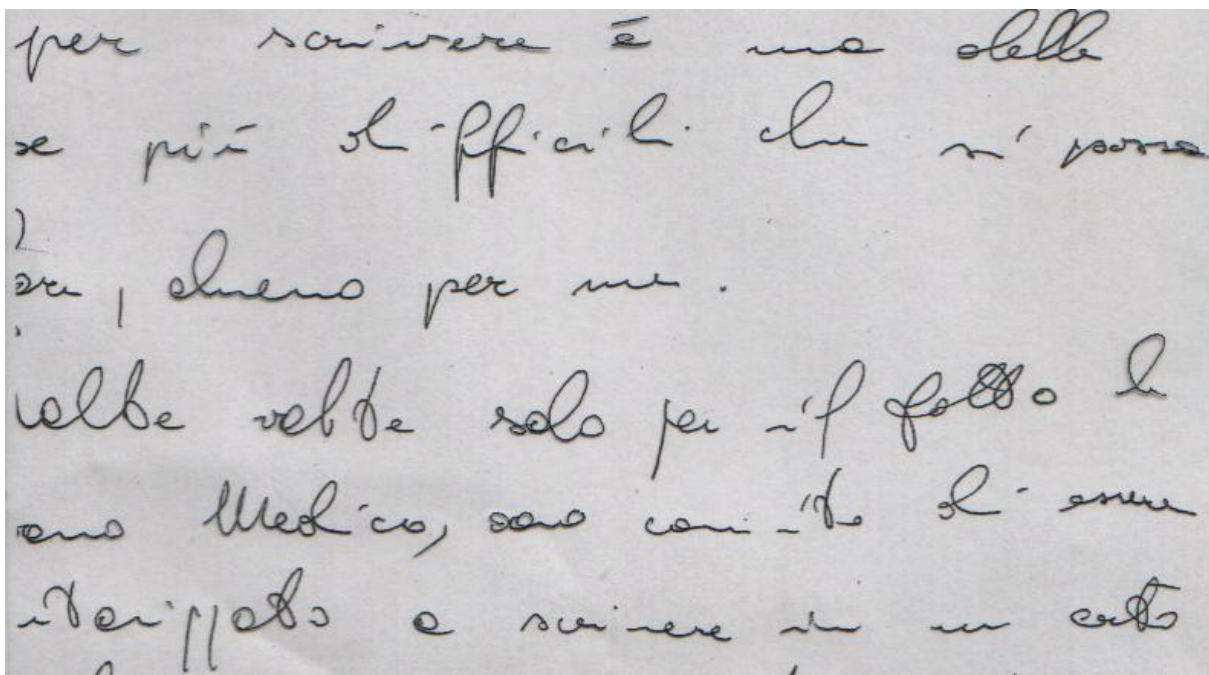 per scrivere è una delle
se più difficili che si possa
are, almeno per me.
volte volte solo per il fatto
ono Medico, sono di essere
utorizzato a scrivere in un certo